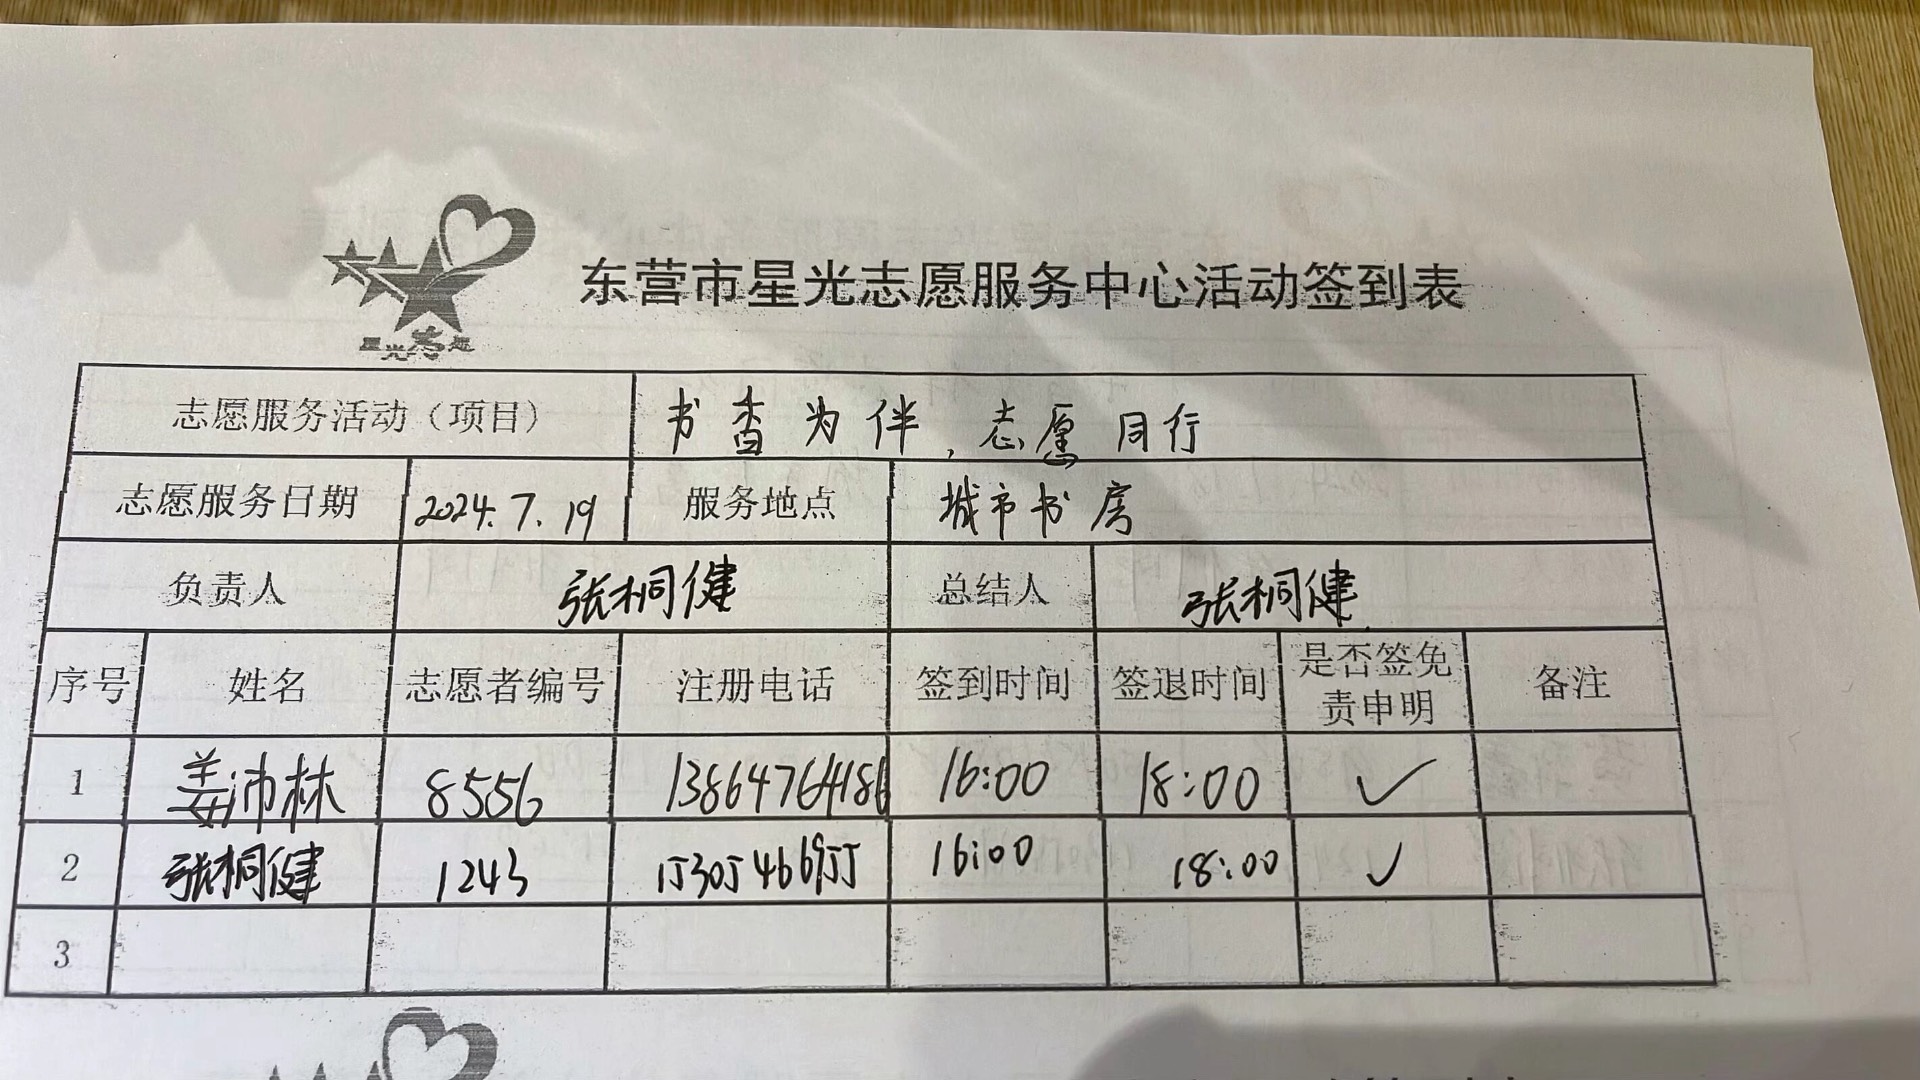 星光志愿
东营市星光志愿服务中心活动签到表
志愿服务活动（项目） 书香为伴，志愿同行
志愿服务日期 2024.7.19 服务地点 城市书房
负责人 张桐健 总结人 张桐健
序号 姓名 志愿者编号 注册电话 签到时间 签退时间 是否签免责申明 备注
1 姜沛林 8556 13864764186 16:00 18:00 ✓
2 张桐健 1243 15305466955 16:00 18:00 ✓
3